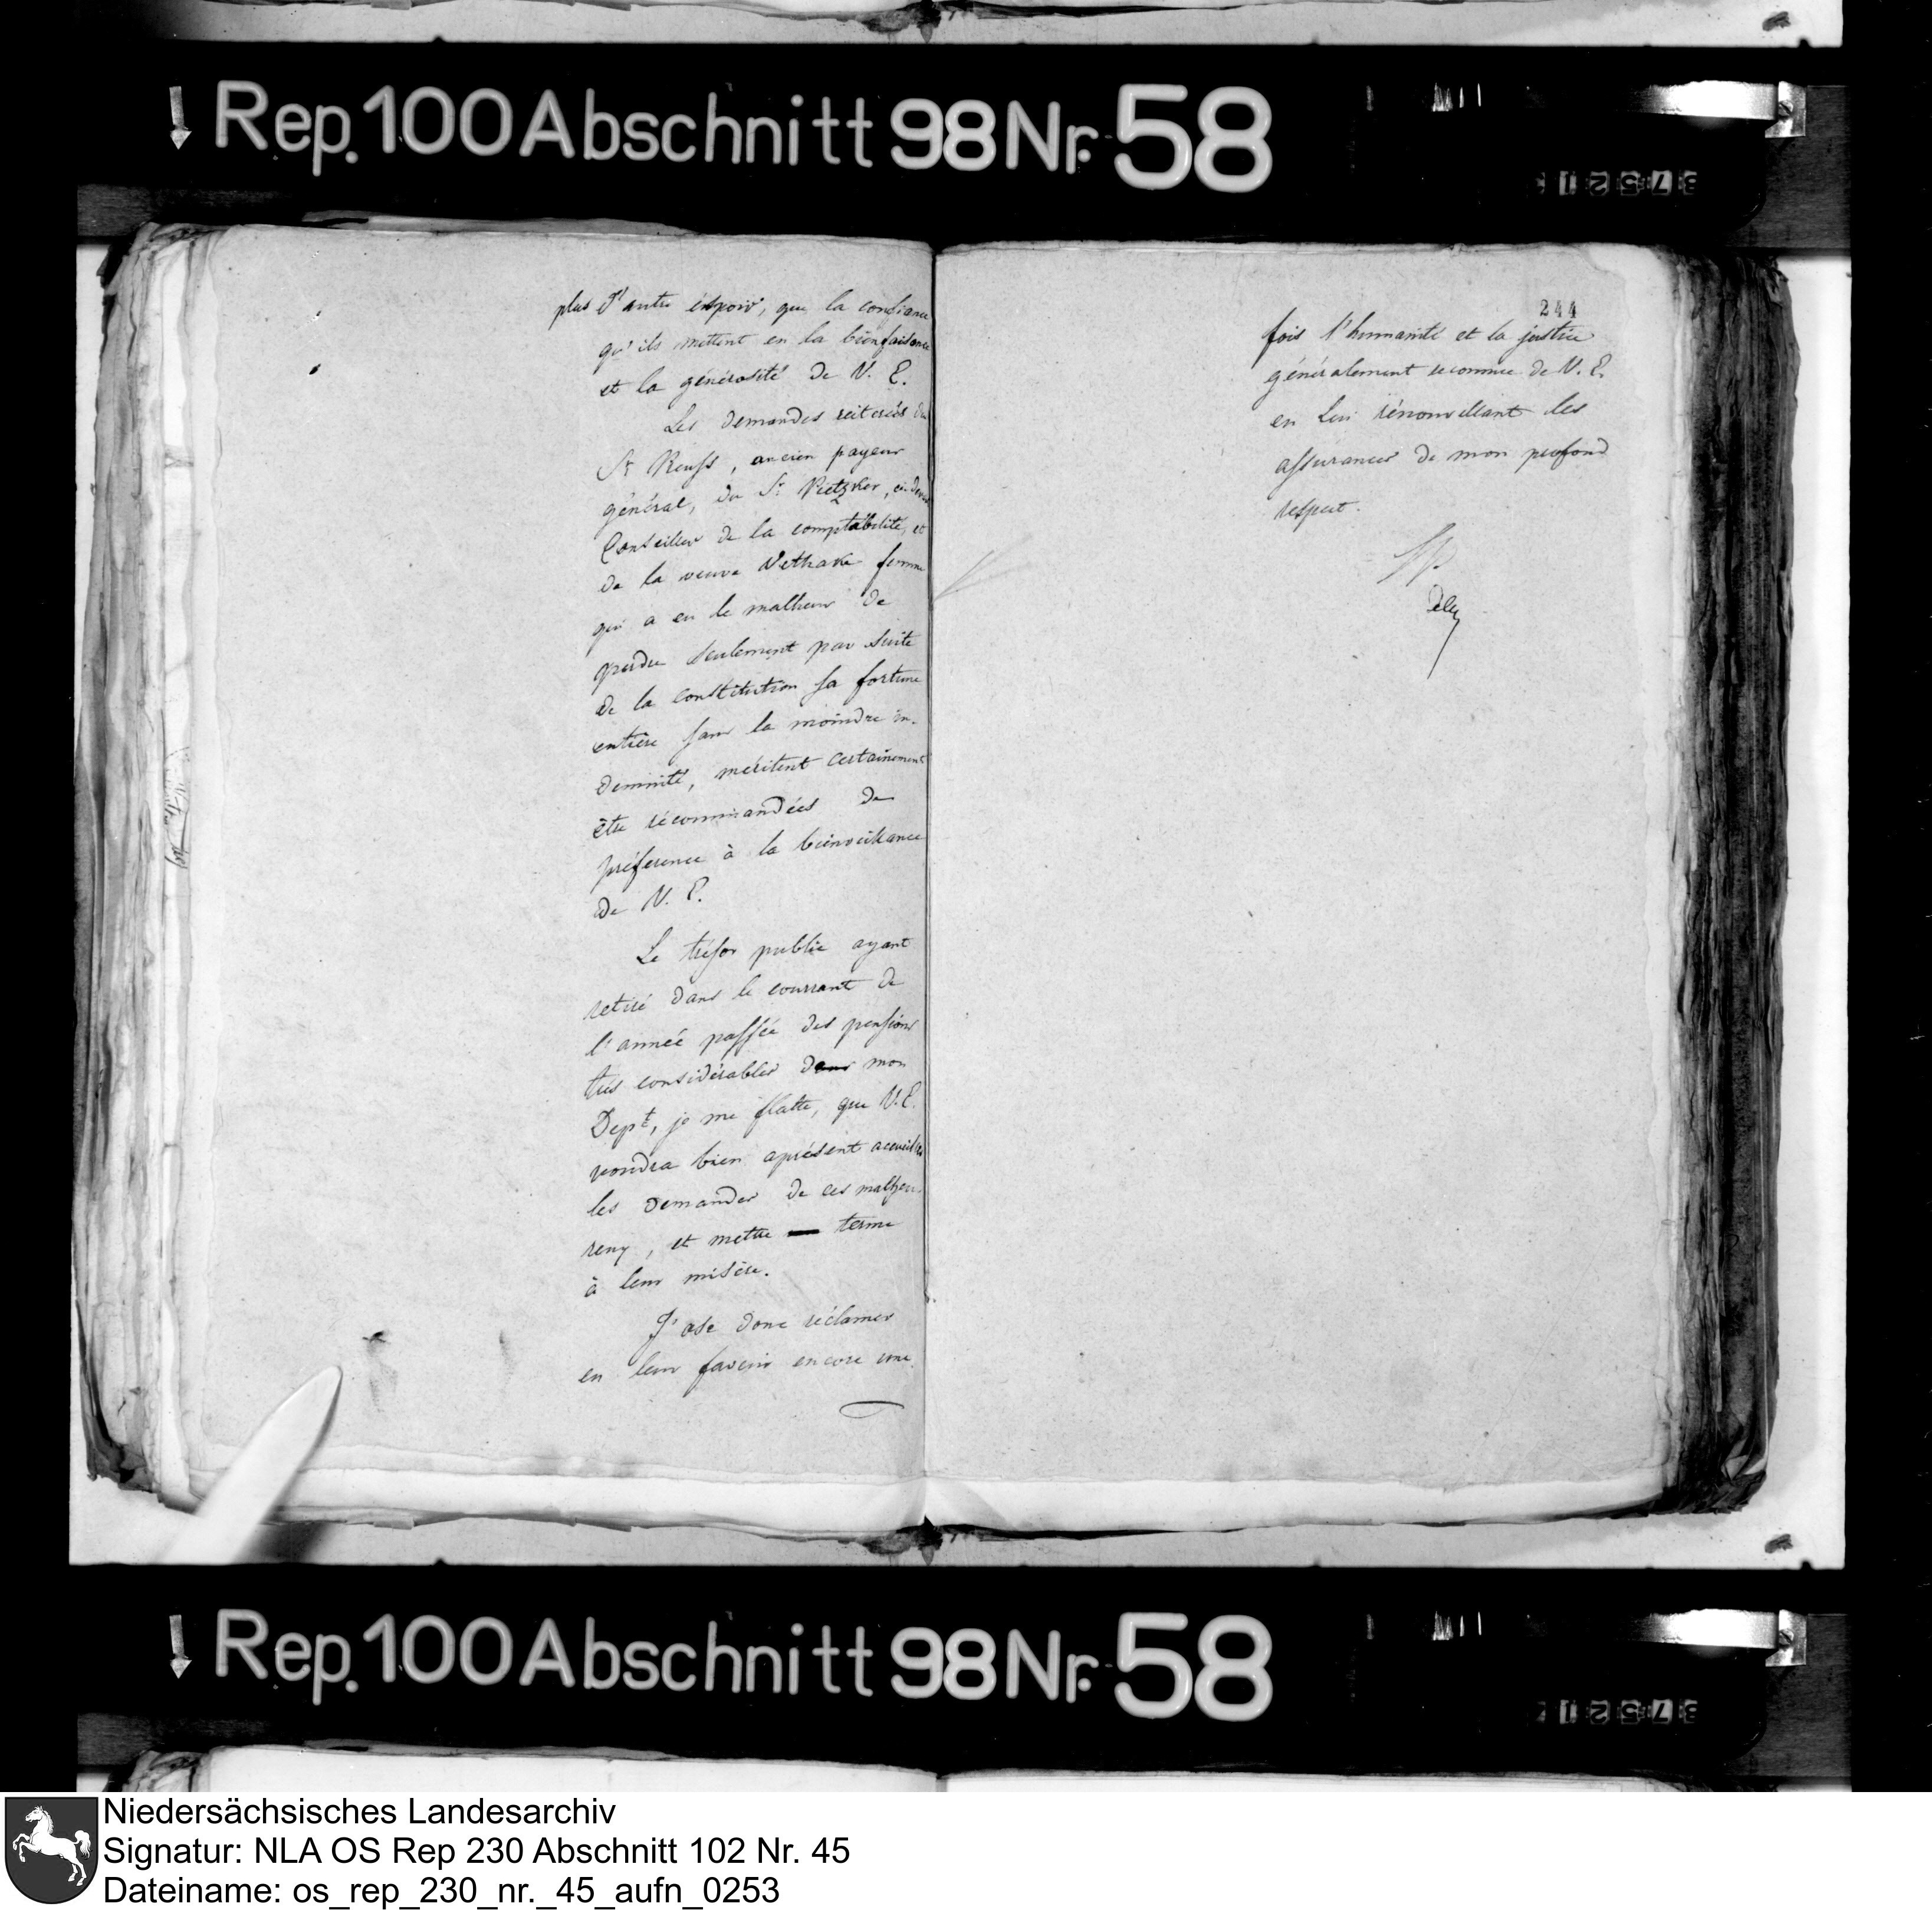 Rep. 100 Abschnitt 98 Nr. 58
37521
plus d'autre éspoir, que la confiance
qu'ils mettent en la bienfaisance
et la générosité de V. E.
Les demandes reiterées du
Sr Reuss, ancien payeur
général, du Sr Vietzker, ci-devant
Conseiller de la comptabilité, et
de la veuve Vethake femme
qui a eu le malheur de
perdre seulement par suite
de la constitution sa fortune
entière sans la moindre in-
demnité, meritent certainement
être récommandées de
préference à la bienveillance
de V. E.
Le trésor public ayant
retiré dans le courrant de
l'année passée des pensions
très considérables de mon
Dept, je me flatte, que V. E.
voudra bien aprésent accueillir
les demandes de ces malheu-
reux, et mettre terme
à leur misère.
J'ose donc réclamer
en leur faveur encore une
244
fois l'humanité et la justice
généralement reconnue de V. E.
en Lui rénouvellant les
assurances de mon profond
respect.
Rep. 100 Abschnitt 98 Nr. 58
37521
Niedersächsisches Landesarchiv
Signatur: NLA OS Rep 230 Abschnitt 102 Nr. 45
Dateiname: os_rep_230_nr._45_aufn_0253